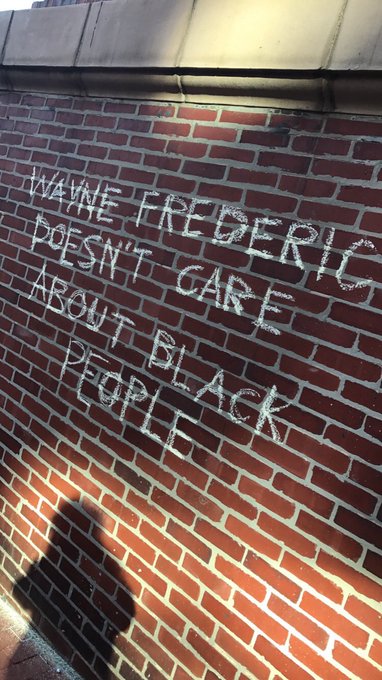 WAYNE FREDERIC
DOESN'T CARE
ABOUT BLACK
PEOPLE